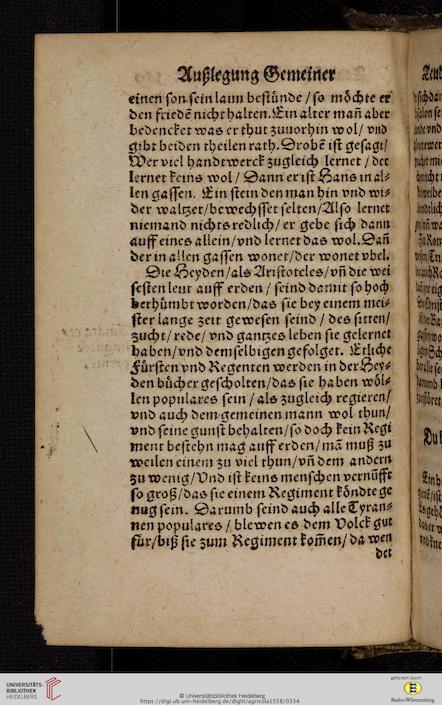 Außlegung Gemeiner
einen son sein laun bestünde / so möchte er
den friedẽ nicht halten. Ein alter mañ aber
bedencket was er thut zuuorhin wol / vnd
gibt beiden theilen rath. Drobẽ ist gesagt /
Wer viel handtwerck zugleich lernet / der
lernet keins wol / Dann er ist Hans in al-
len gassen. Ein stein den man hin vnd wi-
der waltzet / bewechsset selten / Also lernet
niemand nichts redlich / er gebe sich dann
auff eines allein / vnd lernet das wol. Dañ
der in allen gassen wonet / der wonet vbel.
Die Heyden / als Aristoteles / vñ die wei
sesten leut auff erden / seind damit so hoch
berhümbt worden / das sie bey einem mei-
ster lange zeit gewesen seind / des sitten /
zucht / rede / vnd gantzes leben sie gelernet
haben / vnd demselbigen gefolget. Etliche
Fürsten vnd Regenten werden in der Hey-
den bücher gescholten / das sie haben wöl-
len populares sein / als zugleich regieren /
vnd auch dem gemeinen mann wol thun /
vnd seine gunst behalten / so doch kein Regi
ment bestehn mag auff erden / mã muß zu
weilen einem zu viel thun / vñ dem andern
zu wenig / Vnd ist keins menschen vernüfft
so groß / das sie einem Regiment köndte ge
nug sein. Darumb seind auch alle Tyran-
nen populares / blewen es dem Volck gut
für / biß sie zum Regiment kom̃en / da wen
det
UNIVERSITÄTS-
BIBLIOTHEK
HEIDELBERG
© Universitätsbibliothek Heidelberg
https://digi.ub.uni-heidelberg.de/diglit/agricola1558/0334
gefördert durch
Baden-Württemberg